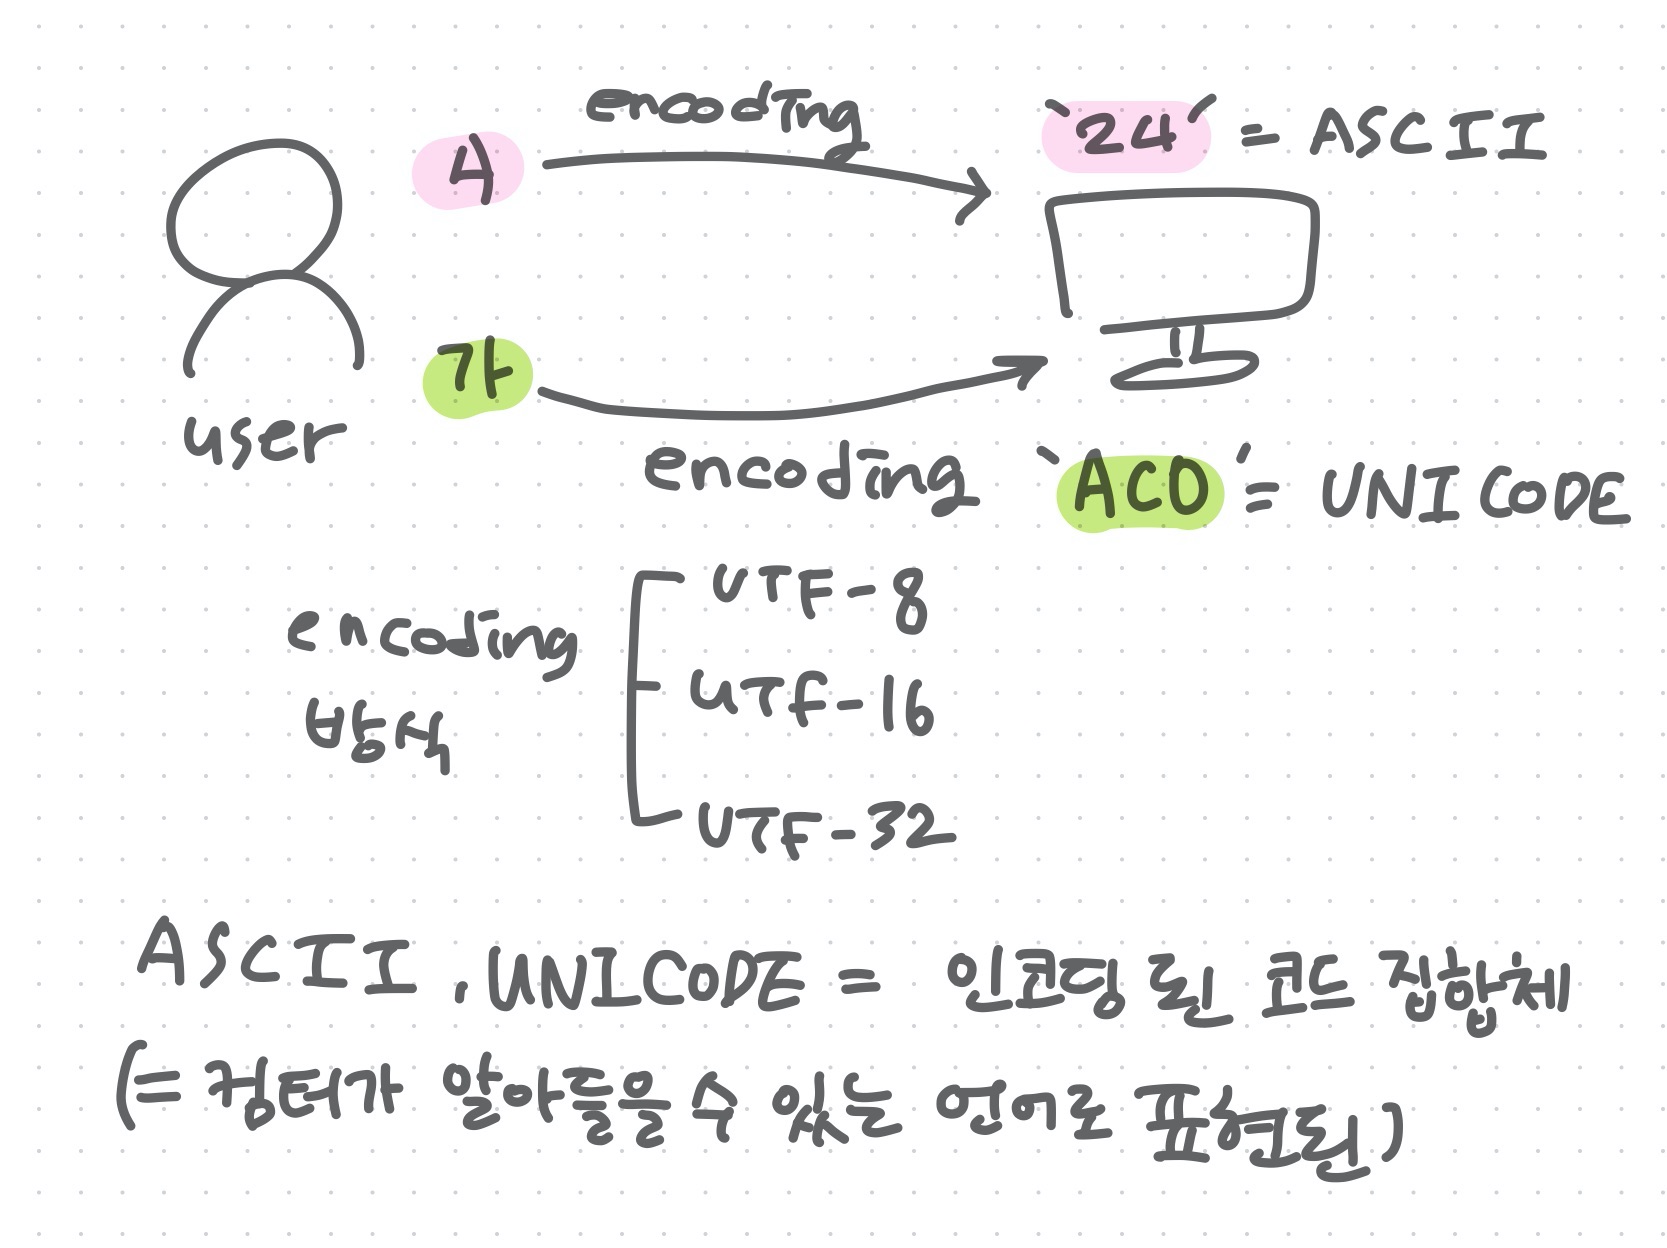 encoding
4
`24´ = ASCII
가
user
encoding
`ACO´ = UNICODE
encoding
방식
UTF-8
UTF-16
UTF-32
ASCII, UNICODE = 인코딩 된 코드 집합체
(= 컴터가 알아들을 수 있는 언어로 표현된)